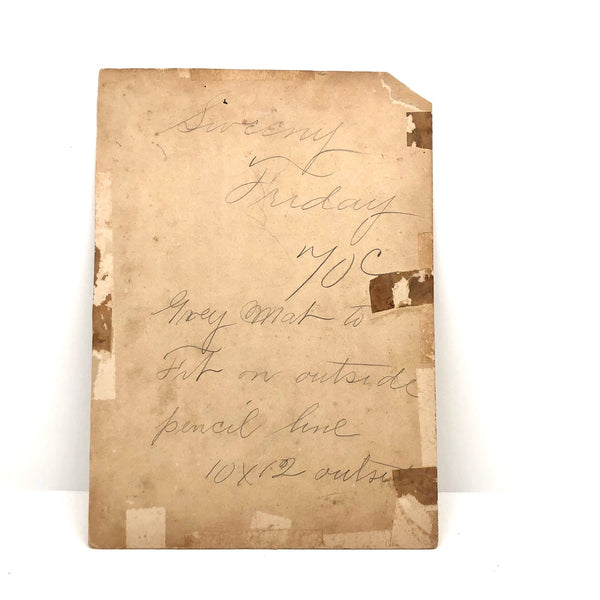 Sweeny
Friday
70c
Grey Mat to
Fit on outside
pencil line
10x12 outside